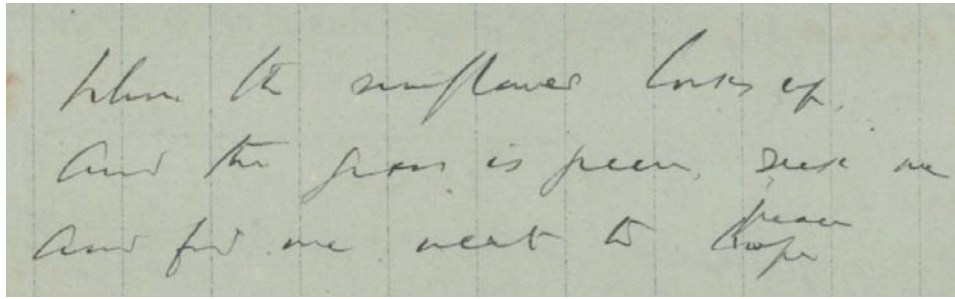 When the sunflower looks up,
And the grass is green, seek me
And find me next to
peace
hope